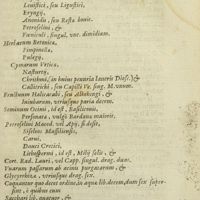 Leuistici, seu Ligustici,
Eryngij,
Anonidis, seu Resta bouis.
Petroselini, &
Fœniculi, singul. vnc. dimidiam.
Herbarum Betonica,
Pimpinella,
Pulegij,
Cymarum Vrtica,
Nasturtij,
Chrithmi, (in huius penuria Iaueris Diosc.) &
Callitrichi, seu Capilli Ve. sing. M. vnum.
Fructuum Halicacabi, seu Alkekengi, &
Iuiubarum, vtriusque paria decem.
Seminum Ocimi, id est, Basiliconis,
Personata, vulgo Bardana maioris,
Petroselini Maced. vel Apij, si desit,
Siselios Massiliensis,
Carui,
Dauci Cretici,
Lithospermi, id est, Milij solis, &
Cort. Rad. Lauri, vel Capp. singul. drag. duas.
Vuarum passarum ab acinis purgatarum, &
Glycyrrhiza, vtriusque drag. sex.
Coquantur quo decet ordine, in aqua lib. decem, dum sex super-
sint, è quibus cum
Sacchari lib. quatuor, &